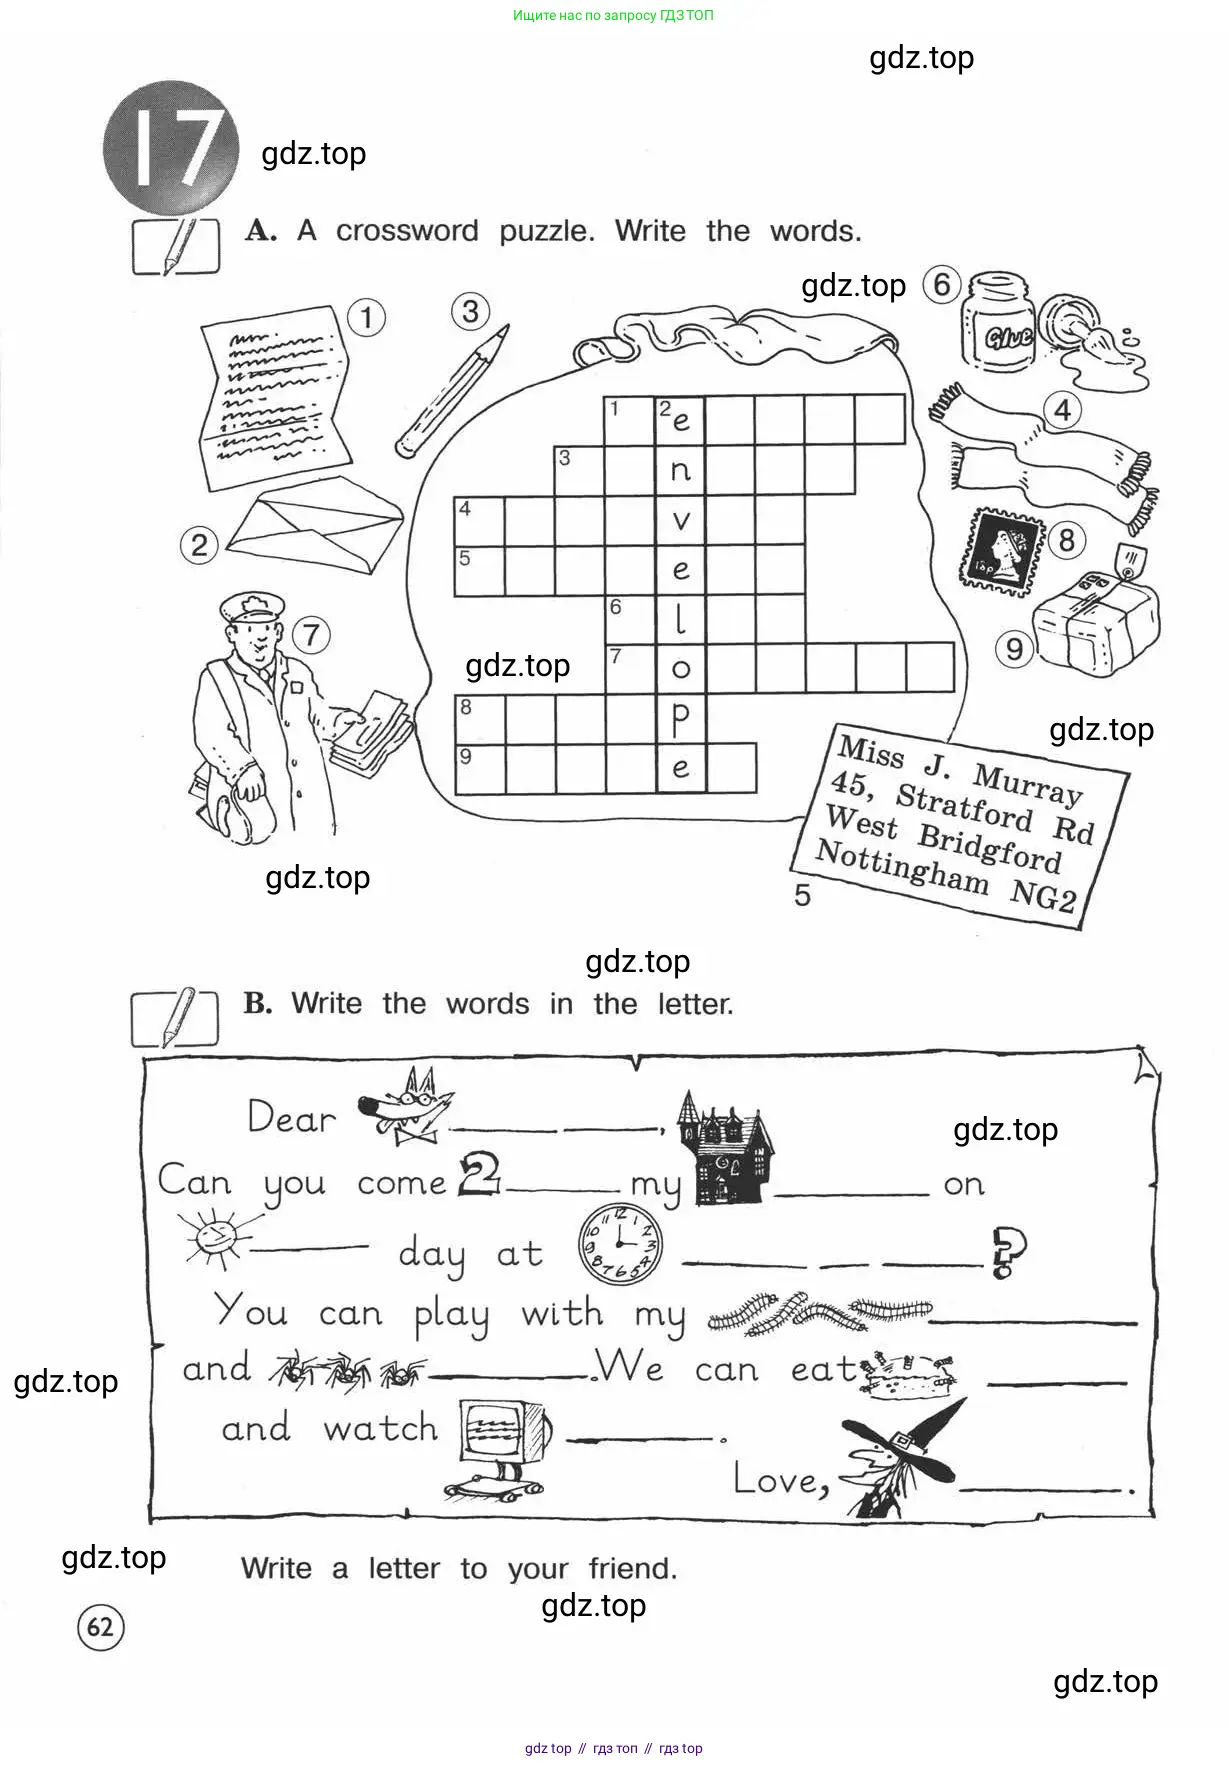 Ищите нас по запросу ГДЗ ТОП
gdz.top
17
gdz.top
A. A crossword puzzle. Write the words.
gdz.top
6
1
3
Glue
4
1 2 e
3 n
4 v
2
5 e
8
18p
6 l
7
gdz.top
7 o
9
8 p
gdz.top
9 e
Miss J. Murray
45, Stratford Rd
West Bridgford
Nottingham NG2
gdz.top
5
gdz.top
B. Write the words in the letter.
Dear ,
gdz.top
Can you come 2 my on
day at 12 1 2 3 4 5 6 7 8 9 10 11 ?
You can play with my
gdz.top
and . We can eat
and watch .
Love, .
gdz.top
Write a letter to your friend.
gdz.top
62
gdz.top
gdz top // гдз топ // gdz top